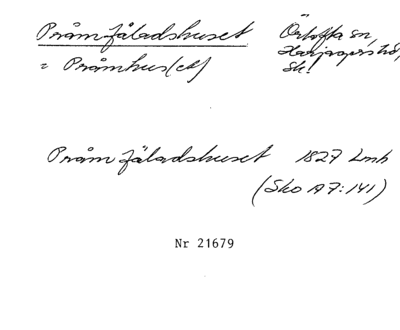 Pråmfäladshuset Örtofta sn,
= Pråmhus(et) Harjagers hd,
Sk.
Pråmfäladshuset 1827 Lmh
(Sko A7:141)
Nr 21679